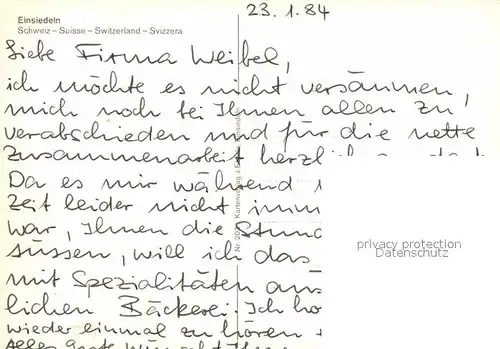 23.1.84
Einsiedeln
Schweiz – Suisse – Switzerland – Svizzera
Liebe Firma Weibel,
ich möchte es nicht versäumen,
mich noch bei Ihnen allen zu
verabschieden und für die nette
Zusammenarbeit herzlich
Da es mir während
Zeit leider nicht imm
war, Ihnen die Stund
süssen, will ich das
mit Spezialitäten aus
lichen Bäckerei. Ich ho
wieder einmal zu hören
Alles Gute wünscht Ihnen
privacy protection
Datenschutz